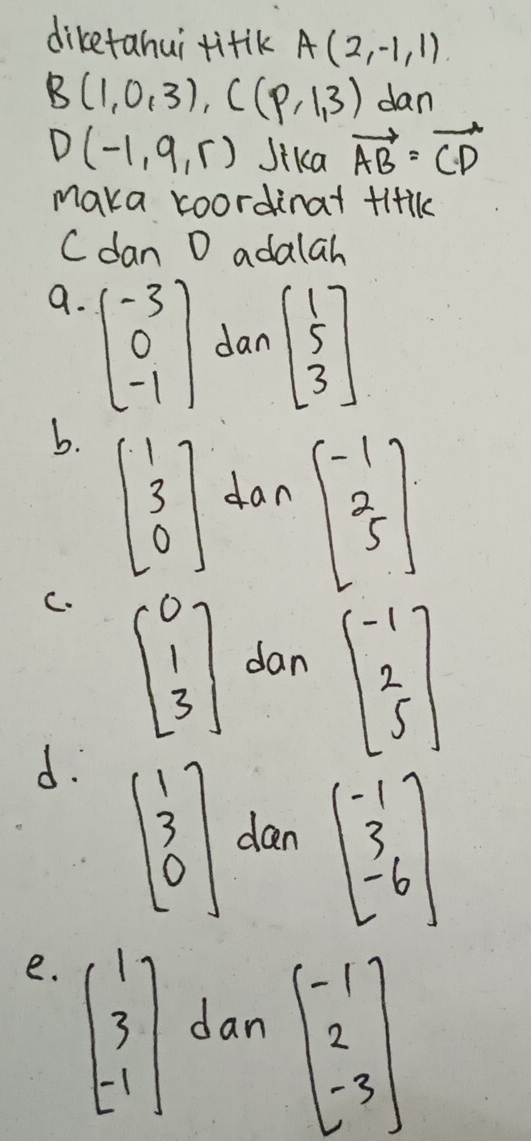 diketahui titik A(2,-1,1).
B(1,0,3), C(p,1,3) dan
D(-1,q,r) Jika AB = CD
maka koordinat titik
C dan D adalah
a. [-3 0 -1] dan [1 5 3]
b. [1 3 0] dan [-1 2 5]
c. [0 1 3] dan [-1 2 5]
d. [1 3 0] dan [-1 3 -6]
e. [1 3 -1] dan [-1 2 -3]